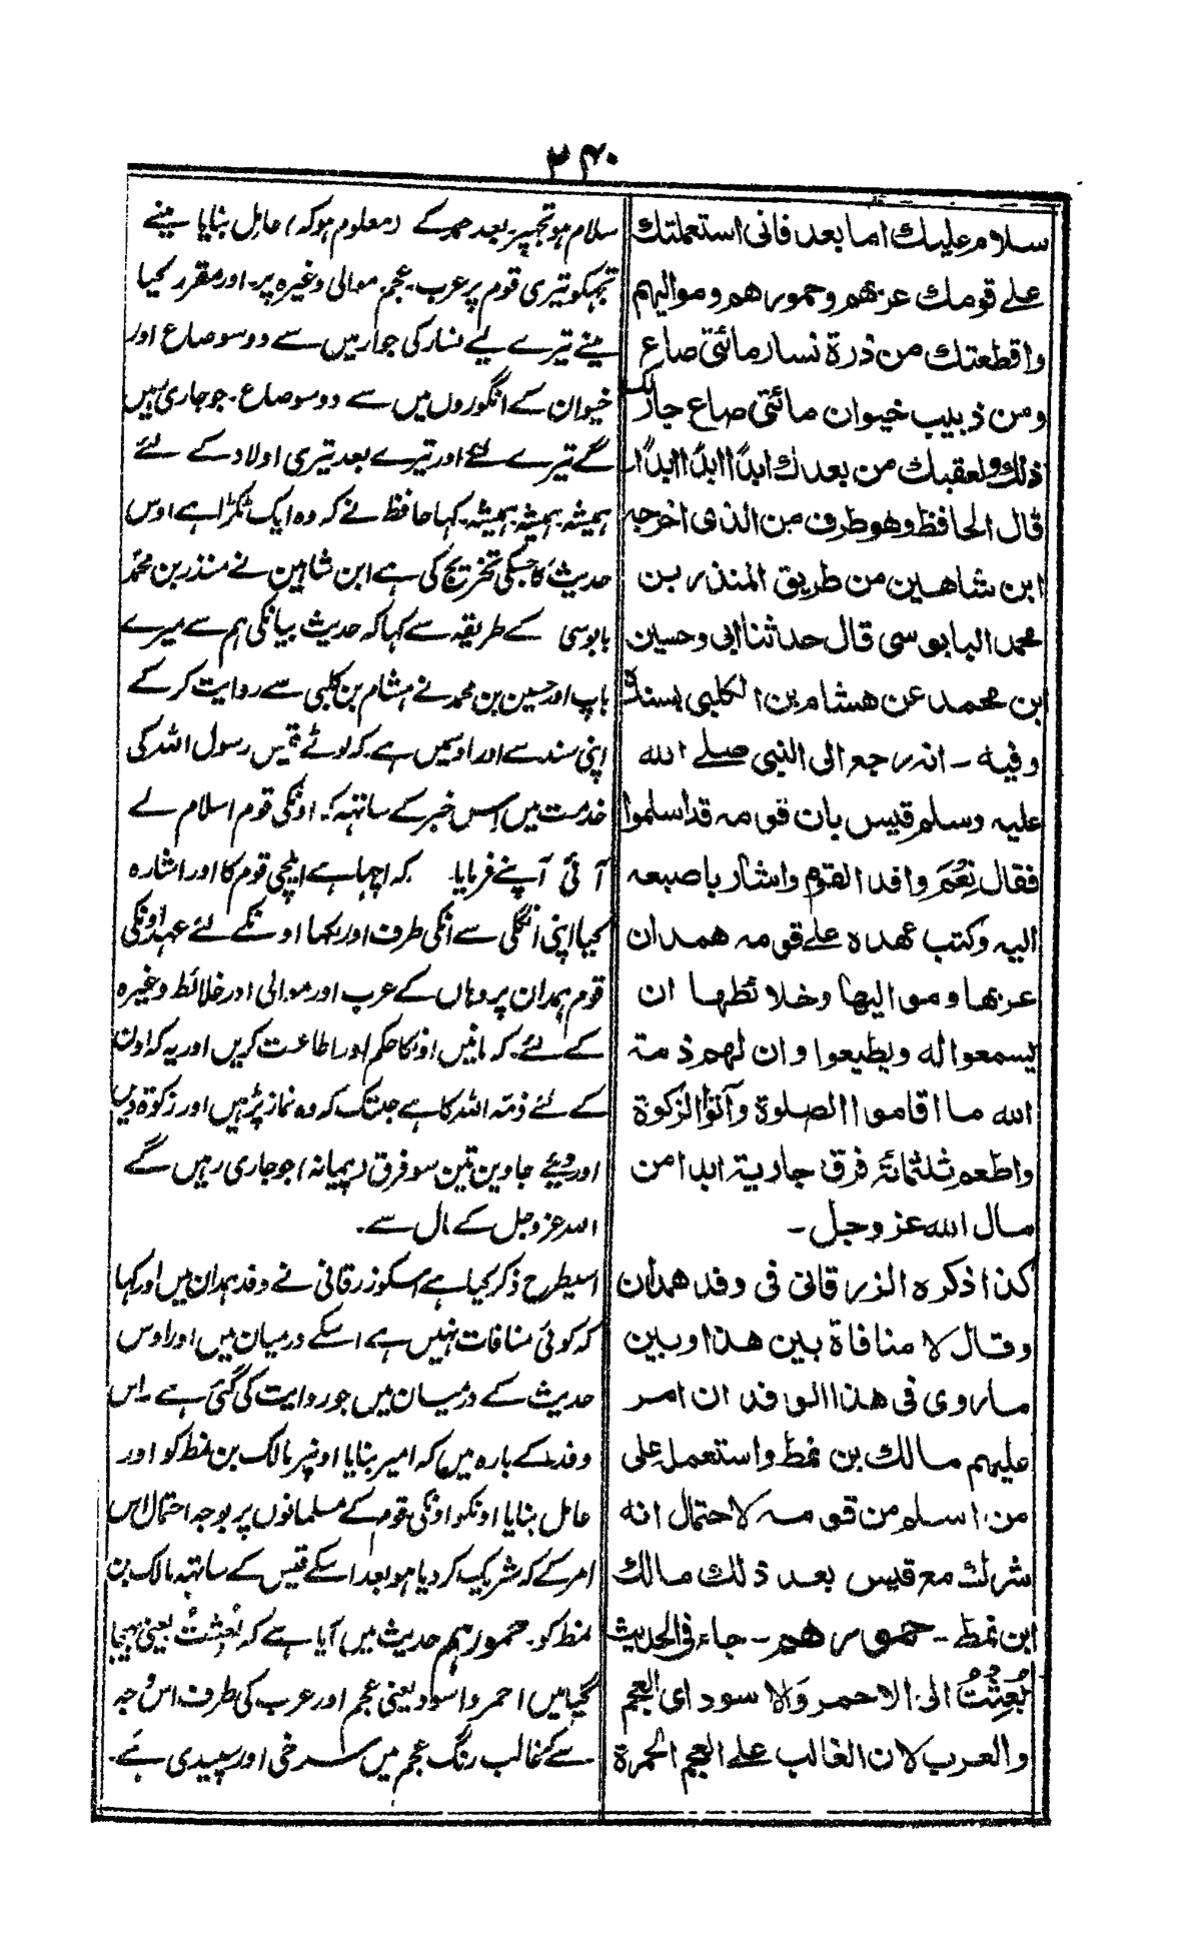 ۲۴۰
سلام علیك اما بعد فانی استعملتك
علے قومك عربهم وحمورهم وموالیهم
واقطعتك من ذرة نسار مائتی صاع
ومن ذبیب خیوان مائتی صاع جار لك
ذلك ولعقبك من بعدك ابدًا ابدًا ابدًا
قال الحافظ وهو طرف من الذی اخرجه
ابن شاهین من طریق المنذر بن
محمد البابوسی قال حدثنا ابی وحسین
بن محمد عن هشام بن الکلبی بسنده
وفیه ۔ انه رجع الی النبی صلے الله
علیه وسلم قیس بان قومه قد اسلموا
فقال نِعْمَ وافد القوم واشار باصبعه
الیه وکتب عهده علے قومه همدان
عربها وموالیها وخلائطها ان
یسمعوا له ویطیعوا وان لهم ذمة
الله ما اقاموا الصلوة وآتوا الزکوة
واطعم ثلثمائة فرق جاریة ابدا من
مال الله عز وجل ۔
کذا ذکره الزرقانی فی وفد همدان
وقال لا منافاة بین هذا وبین
ما روی فی هذا الوفد ان امر
علیهم مالك بن نمط واستعمل علی
من اسلم من قومه لاحتمال انه
شرك مع قیس بعد ذلك مالك
ابن نمط ۔ حمورهم ۔ جاء فی الحدیث
بُعِثْتُ الی الاحمر وَلا سود ای العجم
والعرب لان الغالب علے العجم الحمرة
سلام ہو تجہپر۔ بعد حمد کے (معلوم ہو کہ) عامل بنایا مینے
تجہکو تیری قوم پر عرب۔ عجم۔ موالی وغیرہ پر۔ اور مقرر کیا
مینے تیرے لیے نسار کی جوار میں سے دو سو صاع اور
خیوان کے انگوروں میں سے دو سو صاع۔ جو جاری رہیں
گے تیرے لئے اور تیرے بعد تیری اولاد کے لئے
ہمیشہ ہمیشہ ہمیشہ۔ کہا حافظ نے کہ وہ ایک ٹکڑا ہے اوس
حدیث کا جسکی تخریج کی ہے ابن شاہین نے منذر بن محمد
بابوسی کے طریقہ سے کہا کہ حدیث بیانکی ہم سے میرے
باپ اور حسین بن محمد نے ہشام بن کلبی سے روایت کر کے
اپنی سند سے اور اوسمیں ہے۔ کہ لوٹے قیس رسول اللہ کی
خدمت میں اس خبر کے ساتہہ کہ اونکی قوم اسلام لے
آئی آپنے فرمایا۔ کہ اچہا ہے ایلچی قوم کا اور اشارہ
کیا اپنی انگلی سے انکی طرف اور لکھا اونکے لئے عہد اونکی
قوم ہمدان پر وہاں کے عرب اور موالی اور خلائط وغیرہ
کے لئے۔ کہ مانیں اونکا حکم اور اطاعت کریں اور یہ کہ اون
کے لئے ذمہ اللہ کا ہے جبتک کہ وہ نماز پڑہیں اور زکوۃ دیں
اور دیئے جاویں تین سو فرق (پیمانہ) جو جاری رہیں گے
اللہ عز وجل کے مال سے۔
اسیطرح ذکر کیا ہے اسکو زرقانی نے وفد ہمدان میں اور کہا
کہ کوئی منافات نہیں ہے اسکے درمیان میں اور اوس
حدیث کے درمیان میں جو روایت کی گئی ہے۔ اس
وفد کے بارہ میں کہ امیر بنایا اونپر مالک بن نمط کو اور
عامل بنایا اونکو اونکی قوم کے مسلمانوں پر بوجہ احتمال اس
امر کے کہ شریک کر دیا ہو بعد اسکے قیس کے ساتہہ مالک بن
نمط کو۔ حمورہم حدیث میں آیا ہے کہ بُعِثْتُ یعنی بہیجا
گیا میں احمر و اسود یعنی عجم اور عرب کی طرف اس وجہ
سے کہ غالب رنگ عجم میں سرخی اور سپیدی ہے۔